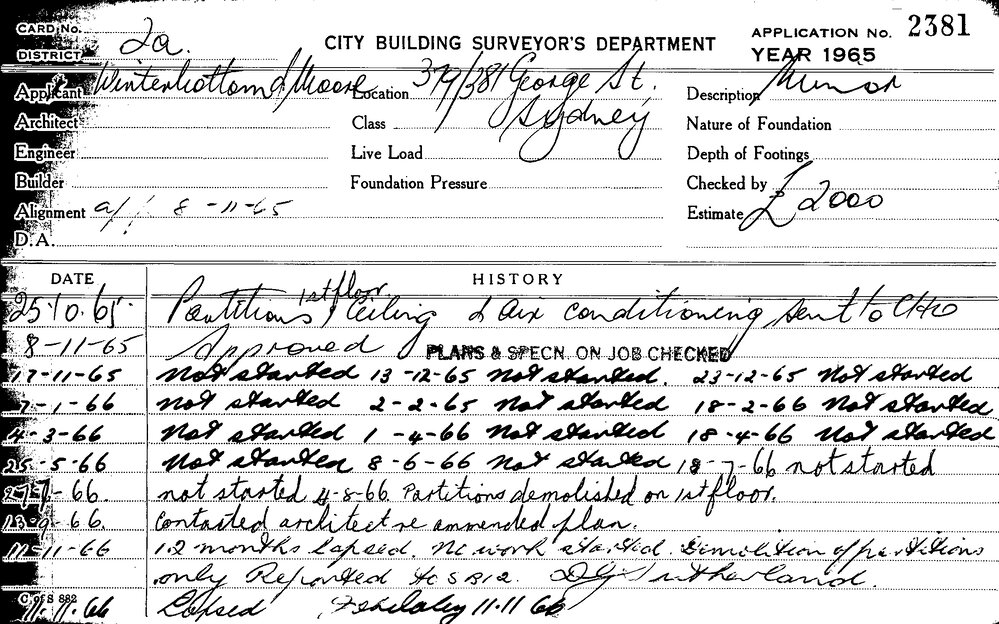 CARD No.
DISTRICT 2a.
CITY BUILDING SURVEYOR'S DEPARTMENT
APPLICATION No. 2381
YEAR 1965
Applicant Winterbottom & Moore
Location 379/381 George St. Sydney
Description Minor
Architect
Class
Nature of Foundation
Engineer
Live Load
Depth of Footings
Builder
Foundation Pressure
Checked by
Alignment a/ 8-11-65
Estimate £ 2000
D.A.
DATE HISTORY
25.10.65 Partitions 1st floor ceiling & air conditioning sent to
8-11-65 Approved PLANS & SPECN. ON JOB CHECKED
17-11-65 Not started 13-12-65 Not started. 23-12-65 Not started
7-1-66 Not started 2-2-65 Not started 18-2-66 Not started
4-3-66 Not started 1-4-66 Not started 18-4-66 Not started
25-5-66 Not started 8-6-66 Not started 18-7-66 not started
27-7-66. not started 4-8-66. Partitions demolished on 1st floor.
13-9-66. Contacted architect re ammended plan.
11-11-66 12 months lapsed. No work started. Demolition of partitions
only Reported to SB12. Sutherland.
C. of S 882
11.11.66 Lapsed 11.11 66